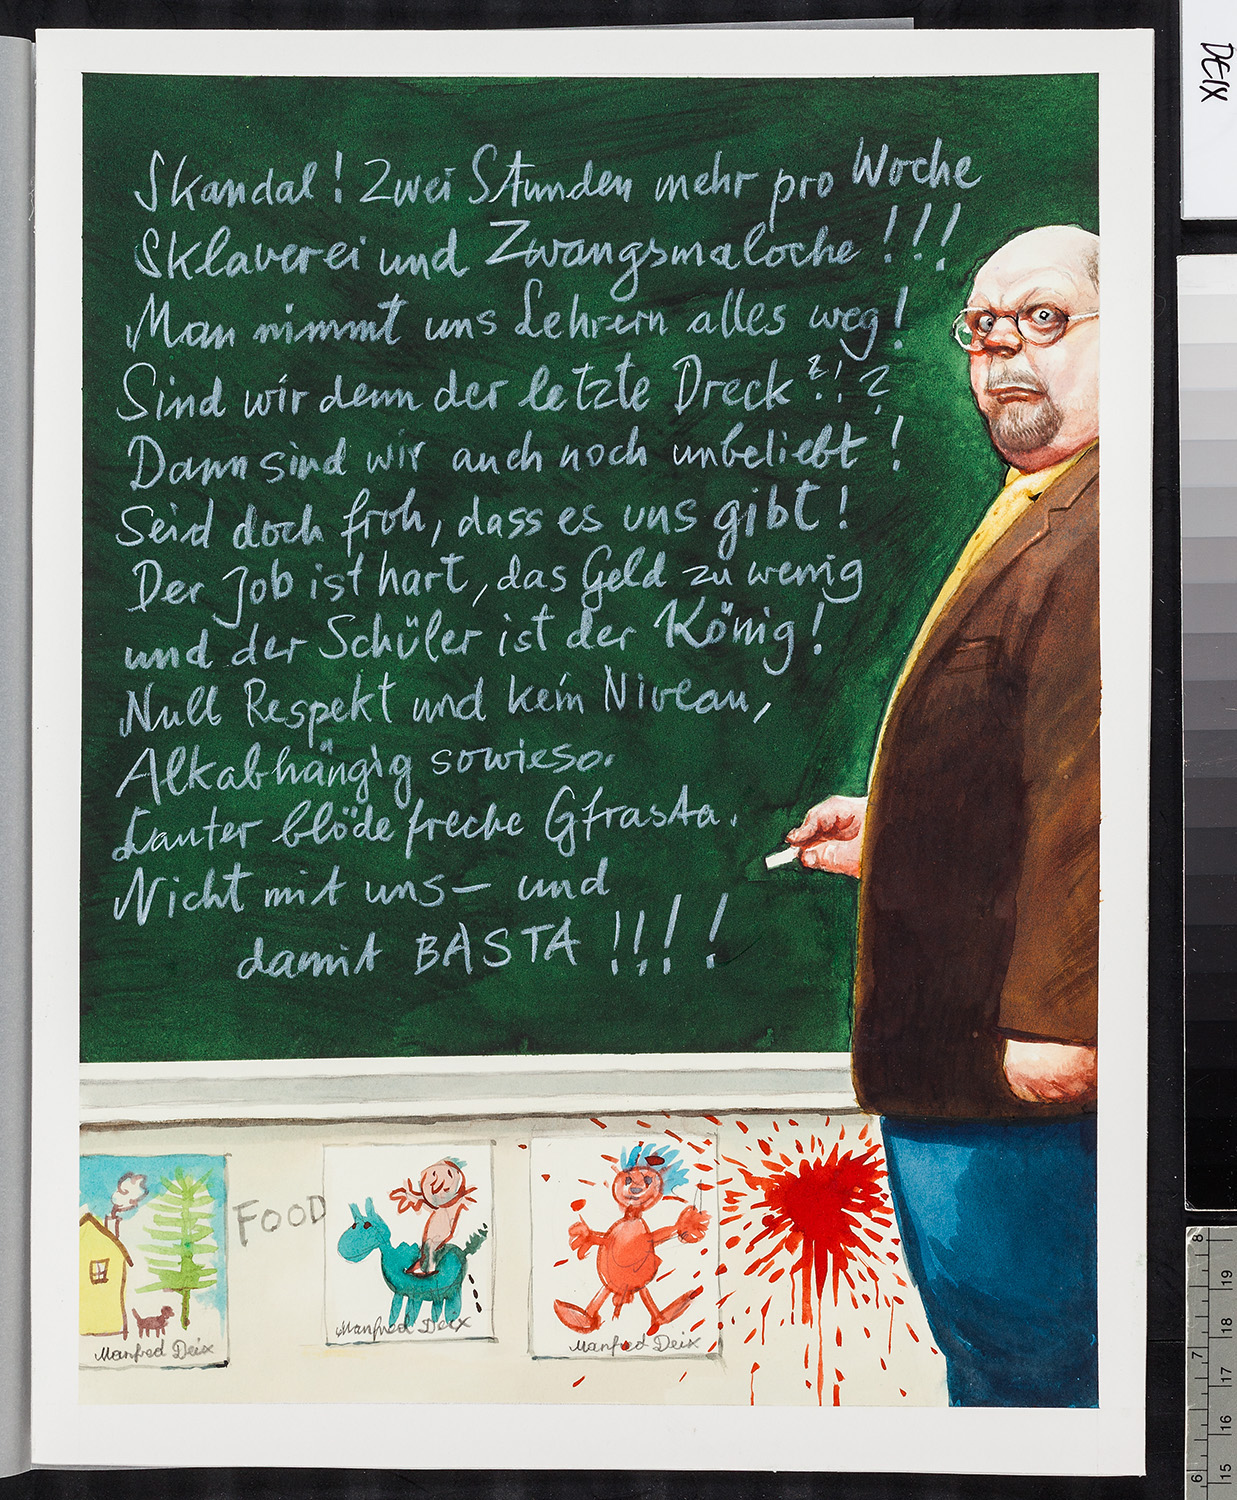 Skandal! Zwei Stunden mehr pro Woche
Sklaverei und Zwangsmaloche!!!
Man nimmt uns Lehrern alles weg!
Sind wir denn der letzte Dreck?!?
Dann sind wir auch noch unbeliebt!
Seid doch froh, dass es uns gibt!
Der Job ist hart, das Geld zu wenig
und der Schüler ist der König!
Null Respekt und kein Niveau,
Alkabhängig sowieso.
Lauter blöde freche Gfrasta.
Nicht mit uns – und
damit BASTA!!!!
FOOD
Manfred Deix
Manfred Deix
Manfred Deix
DEIX
8
19
18
7
17
16
6
15